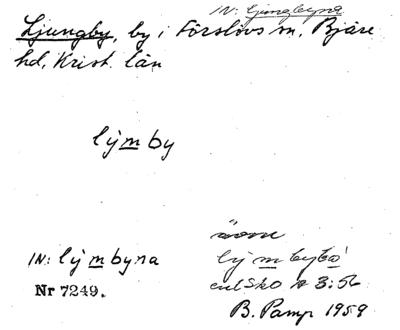 IN: Ljungbyna
Ljungby, by i Förslövs sn, Bjäre
hd, Krist. län
lýmby
IN: lýmbyna
Nr 7249.
lýmbybo
enl Sko 3:56
B. Pamp 1959